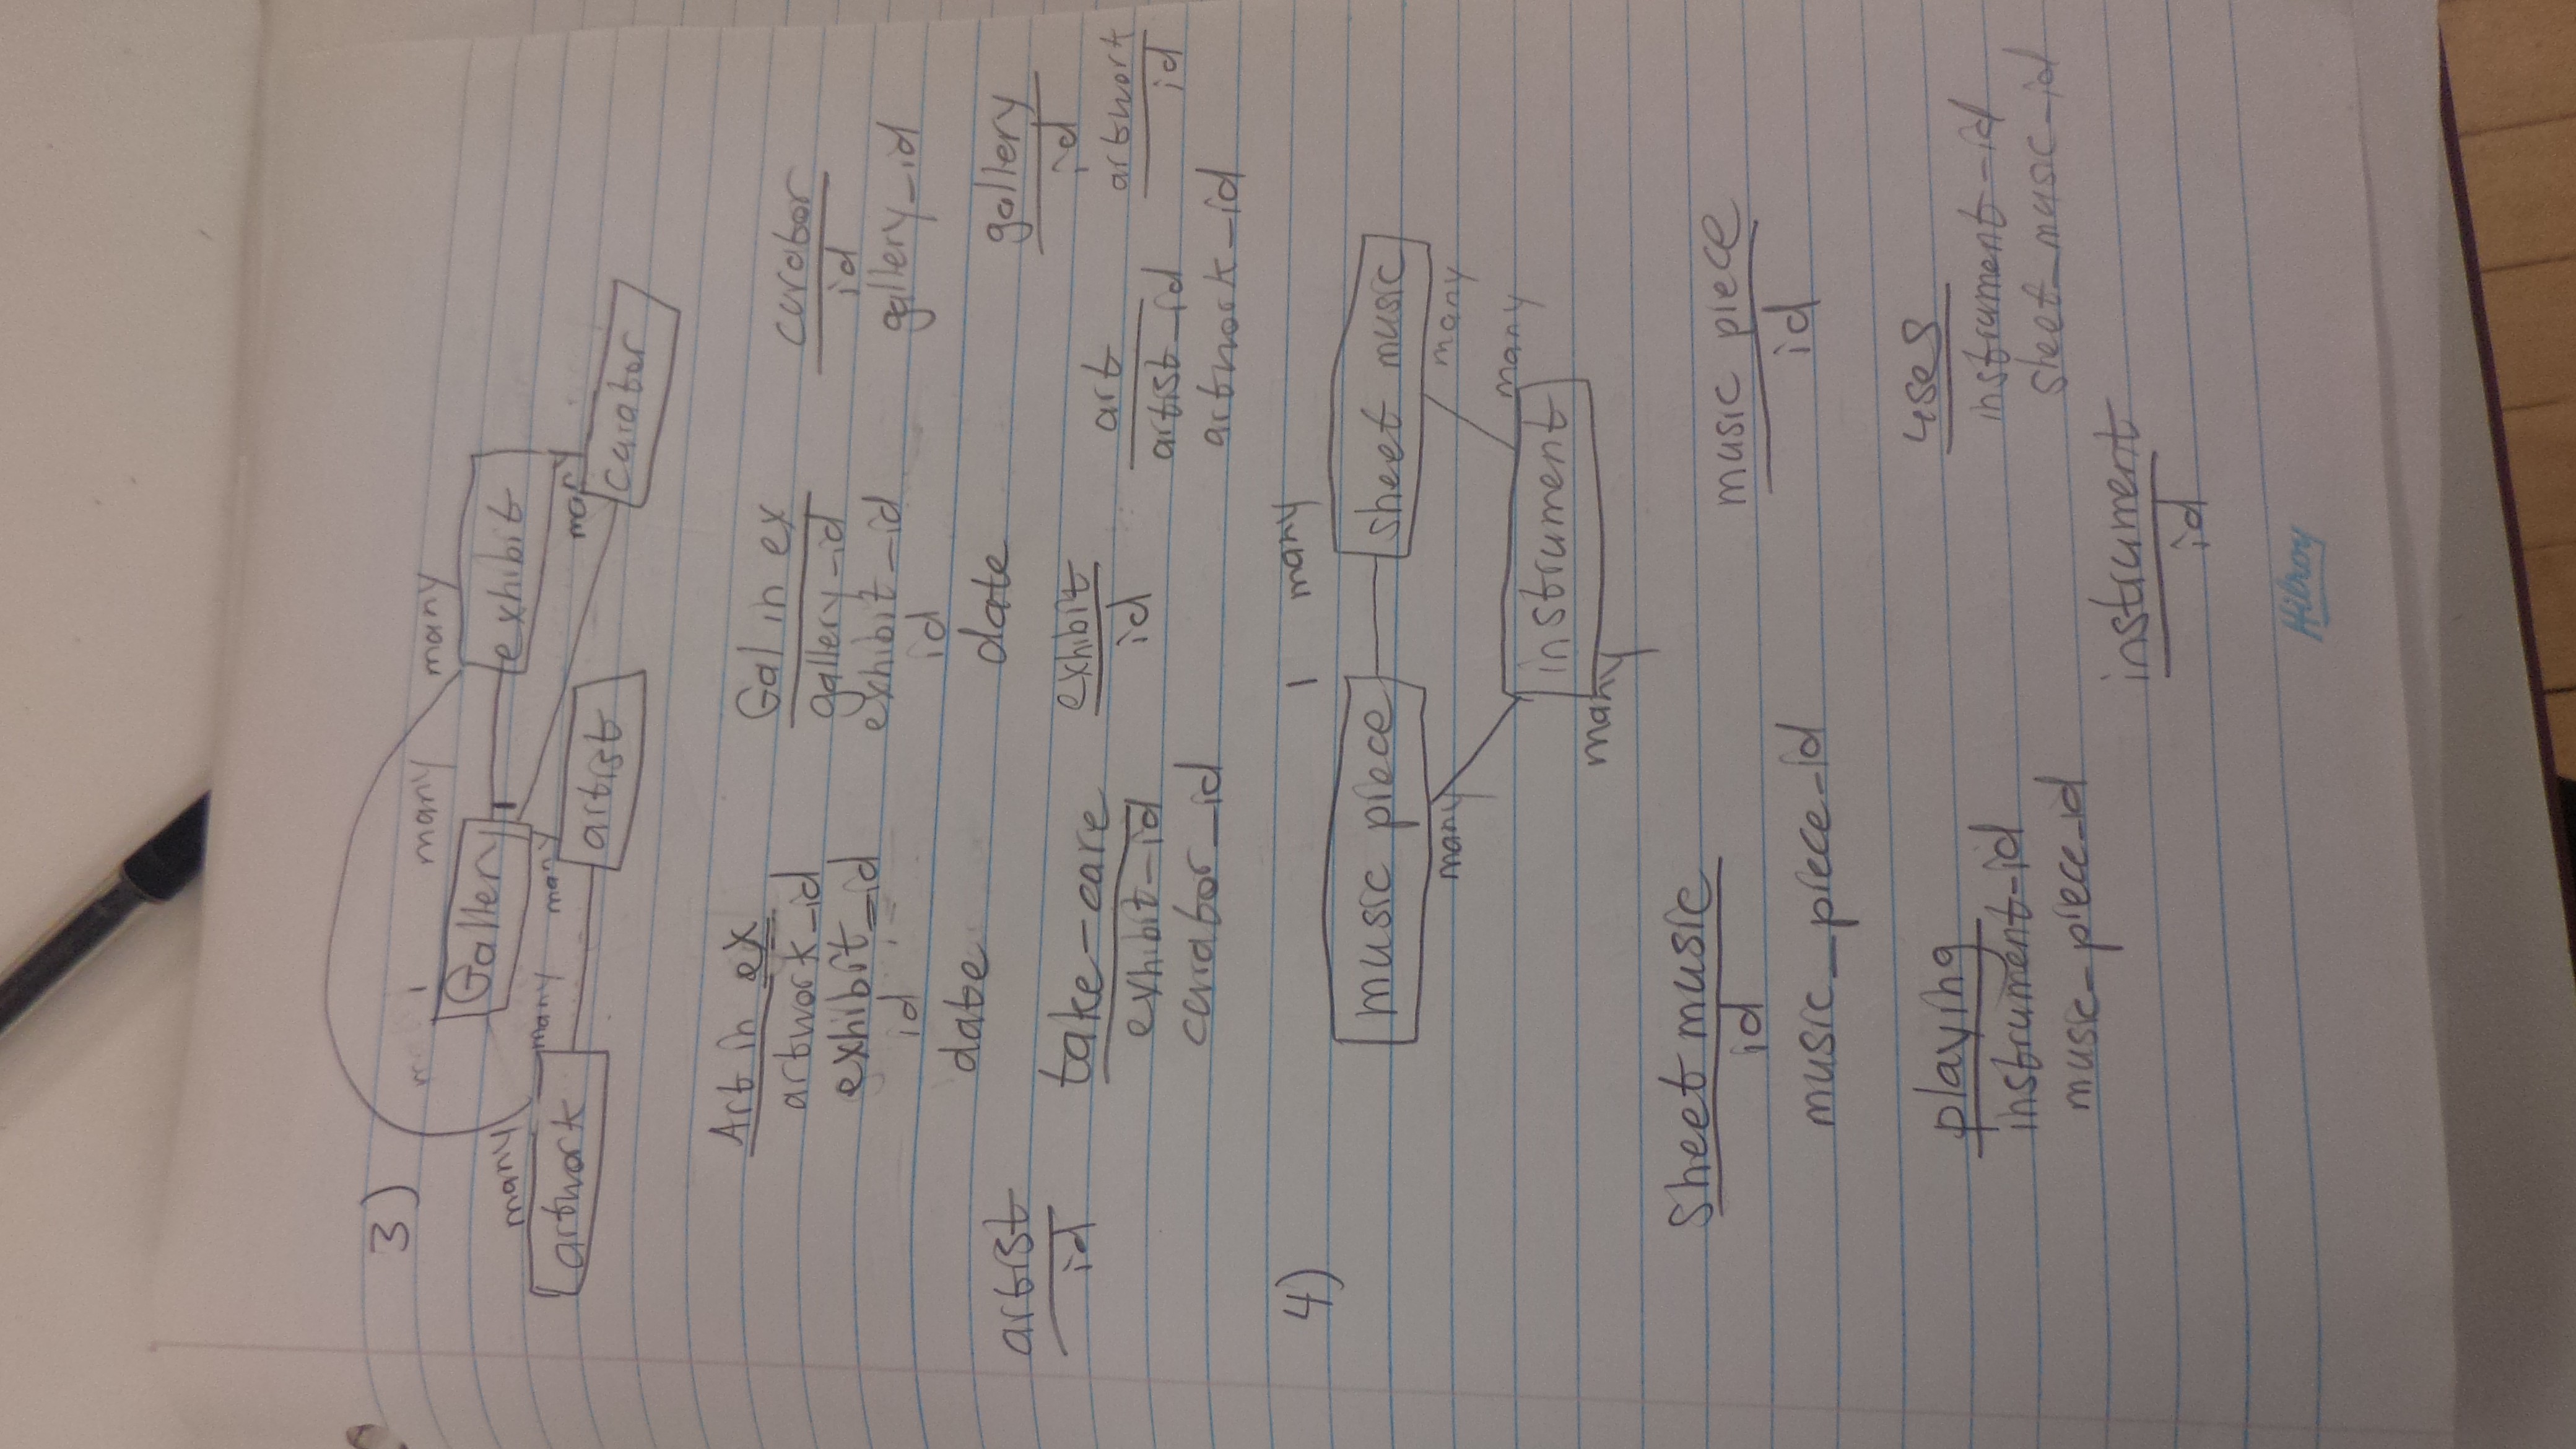 3)
1 many many
Gallery 1 exhibit
many
many many many
artwork artist curator
Art in ex
artwork_id
exhibit_id
id
date
Gal in ex
gallery_id
exhibit_id
id
date
curator
id
gallery_id
gallery
id
artist
id
take-care
exhibit_id
curator_id
exhibit
id
art
artist_id
artwork_id
artwork
id
4)
1 many
music piece sheet music
many many
many
instrument
many
Sheet music
id
music_piece_id
music piece
id
playing
instrument_id
music_piece_id
uses
instrument_id
sheet_music_id
instrument
id
Hilroy